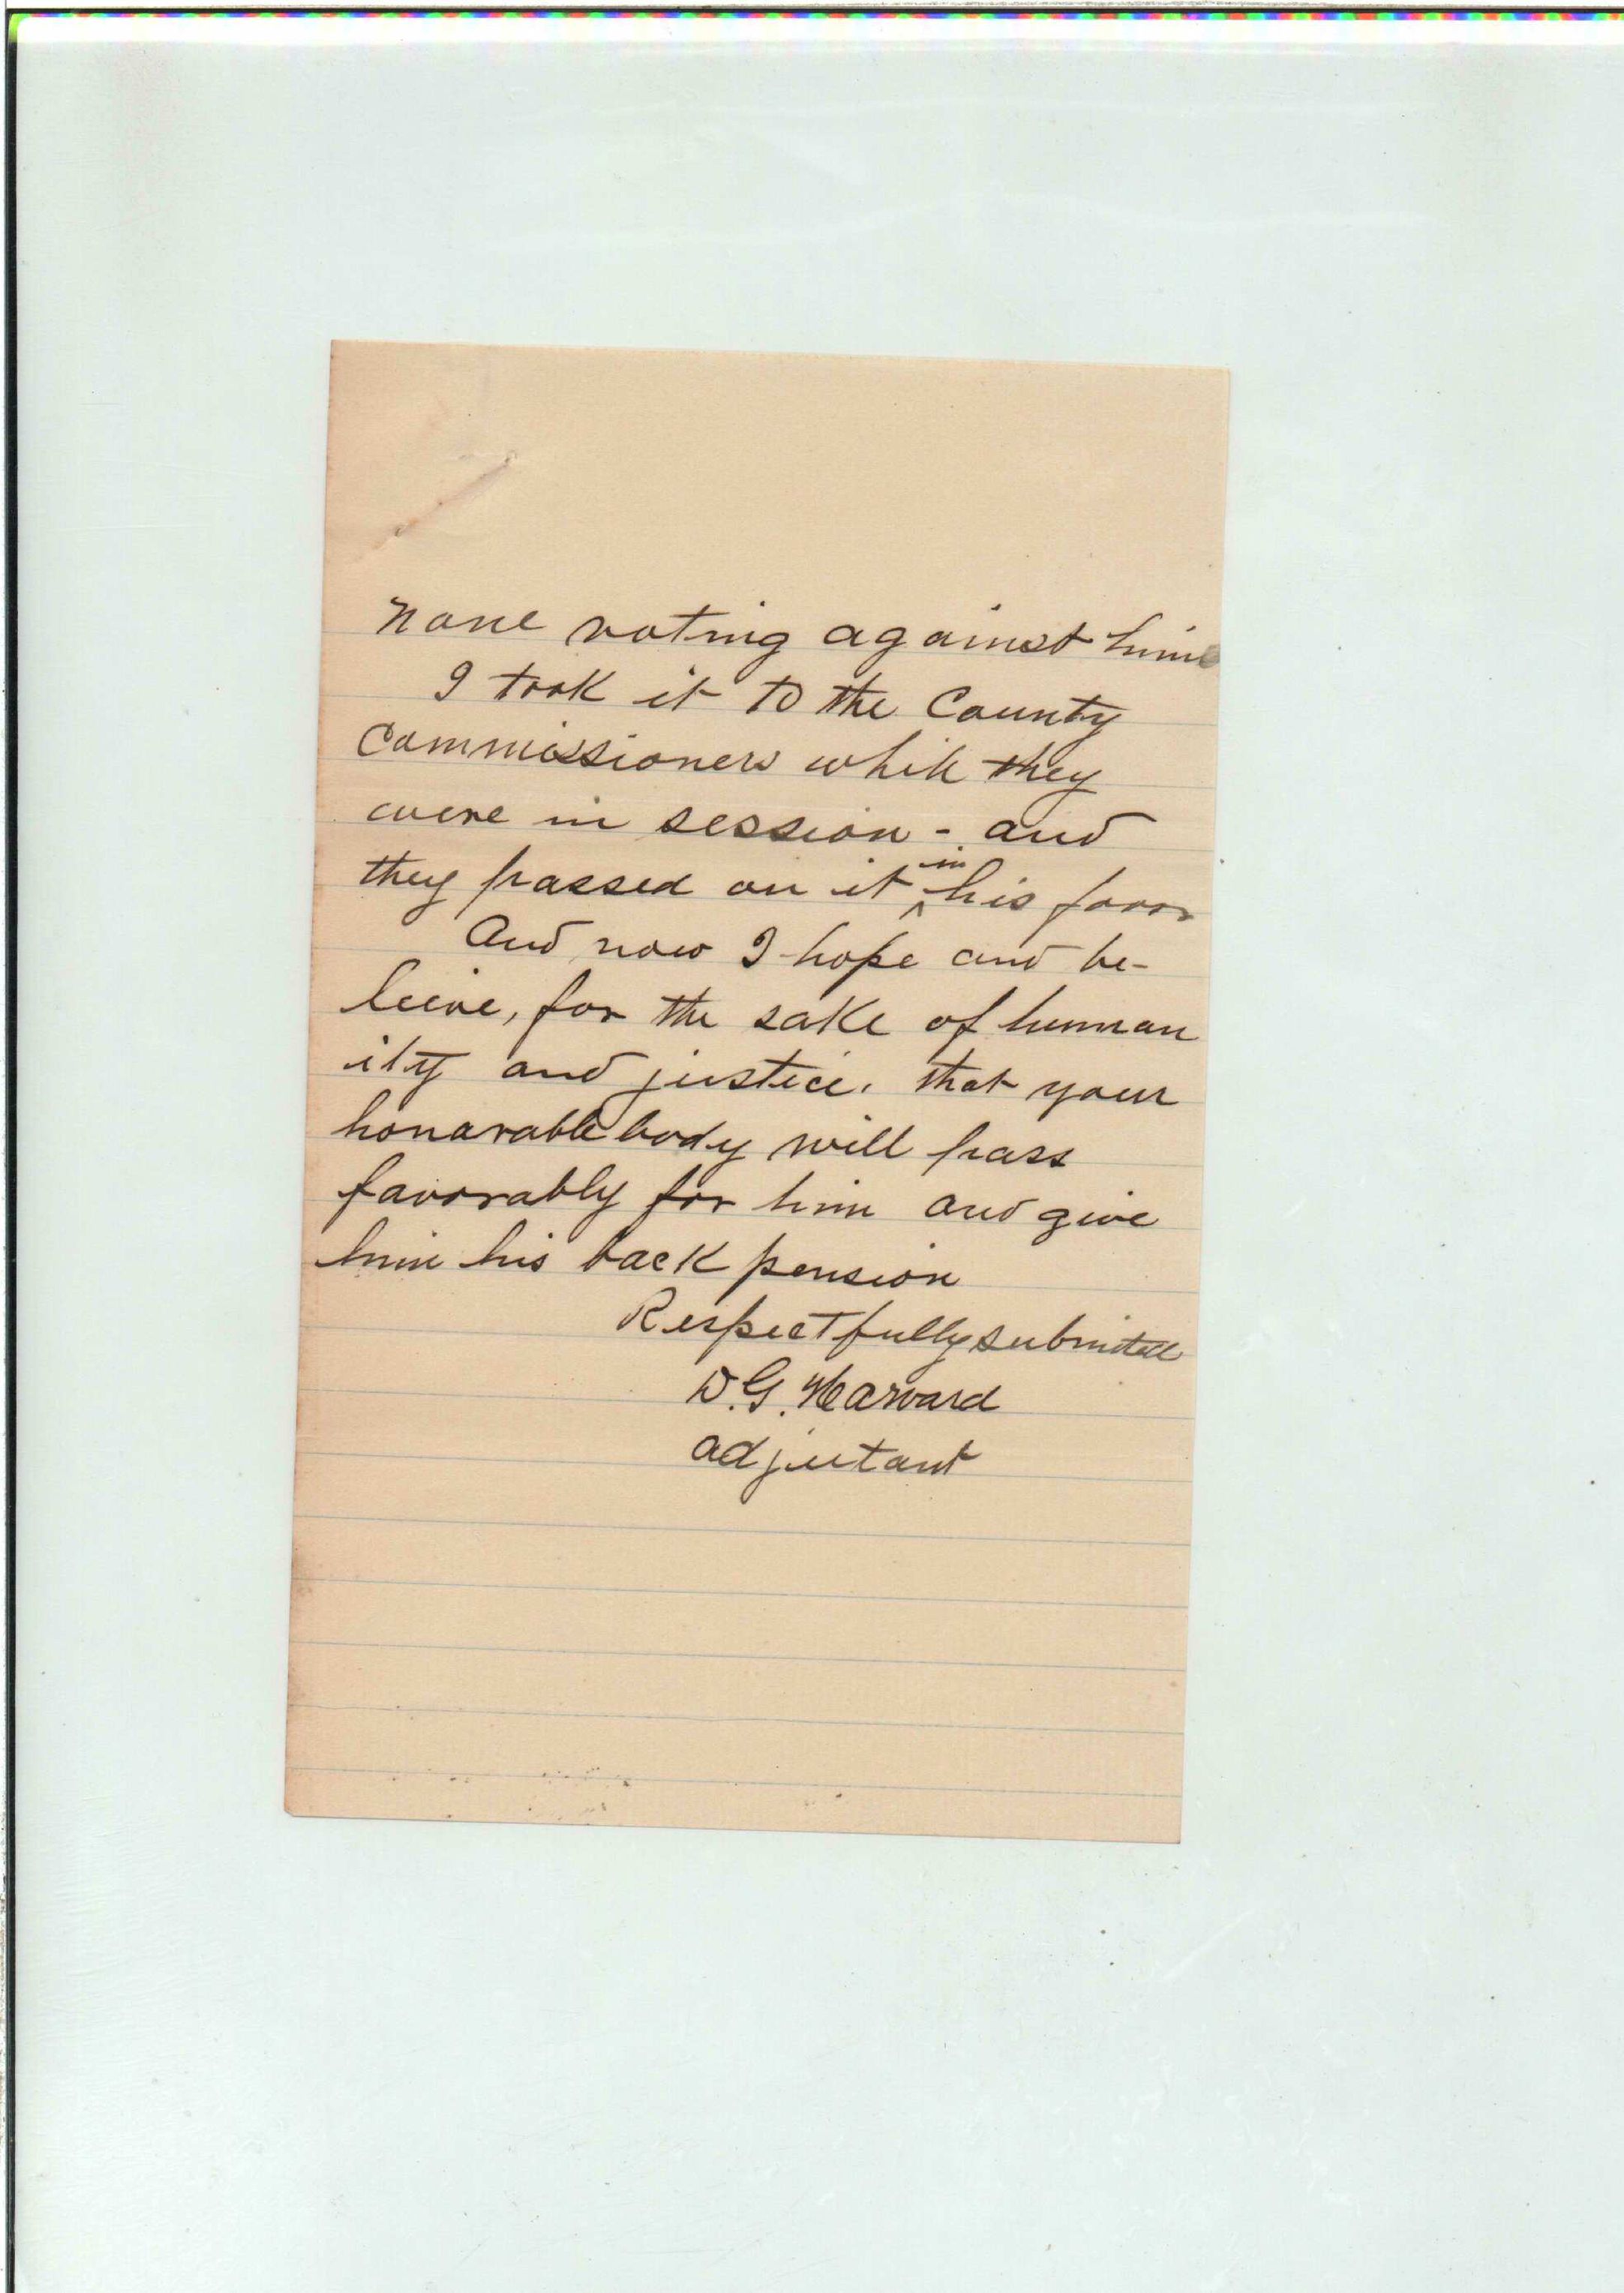 None voting against him
I took it to the County
Commissioners while they
were in session - and
they passed on it in his favor
And now I hope and be-
leive, for the sake of human
ity and justice, that your
honorable body will pass
favorably for him and give
him his back pension
Respectfully submitted
D. G. Harvard
adjutant